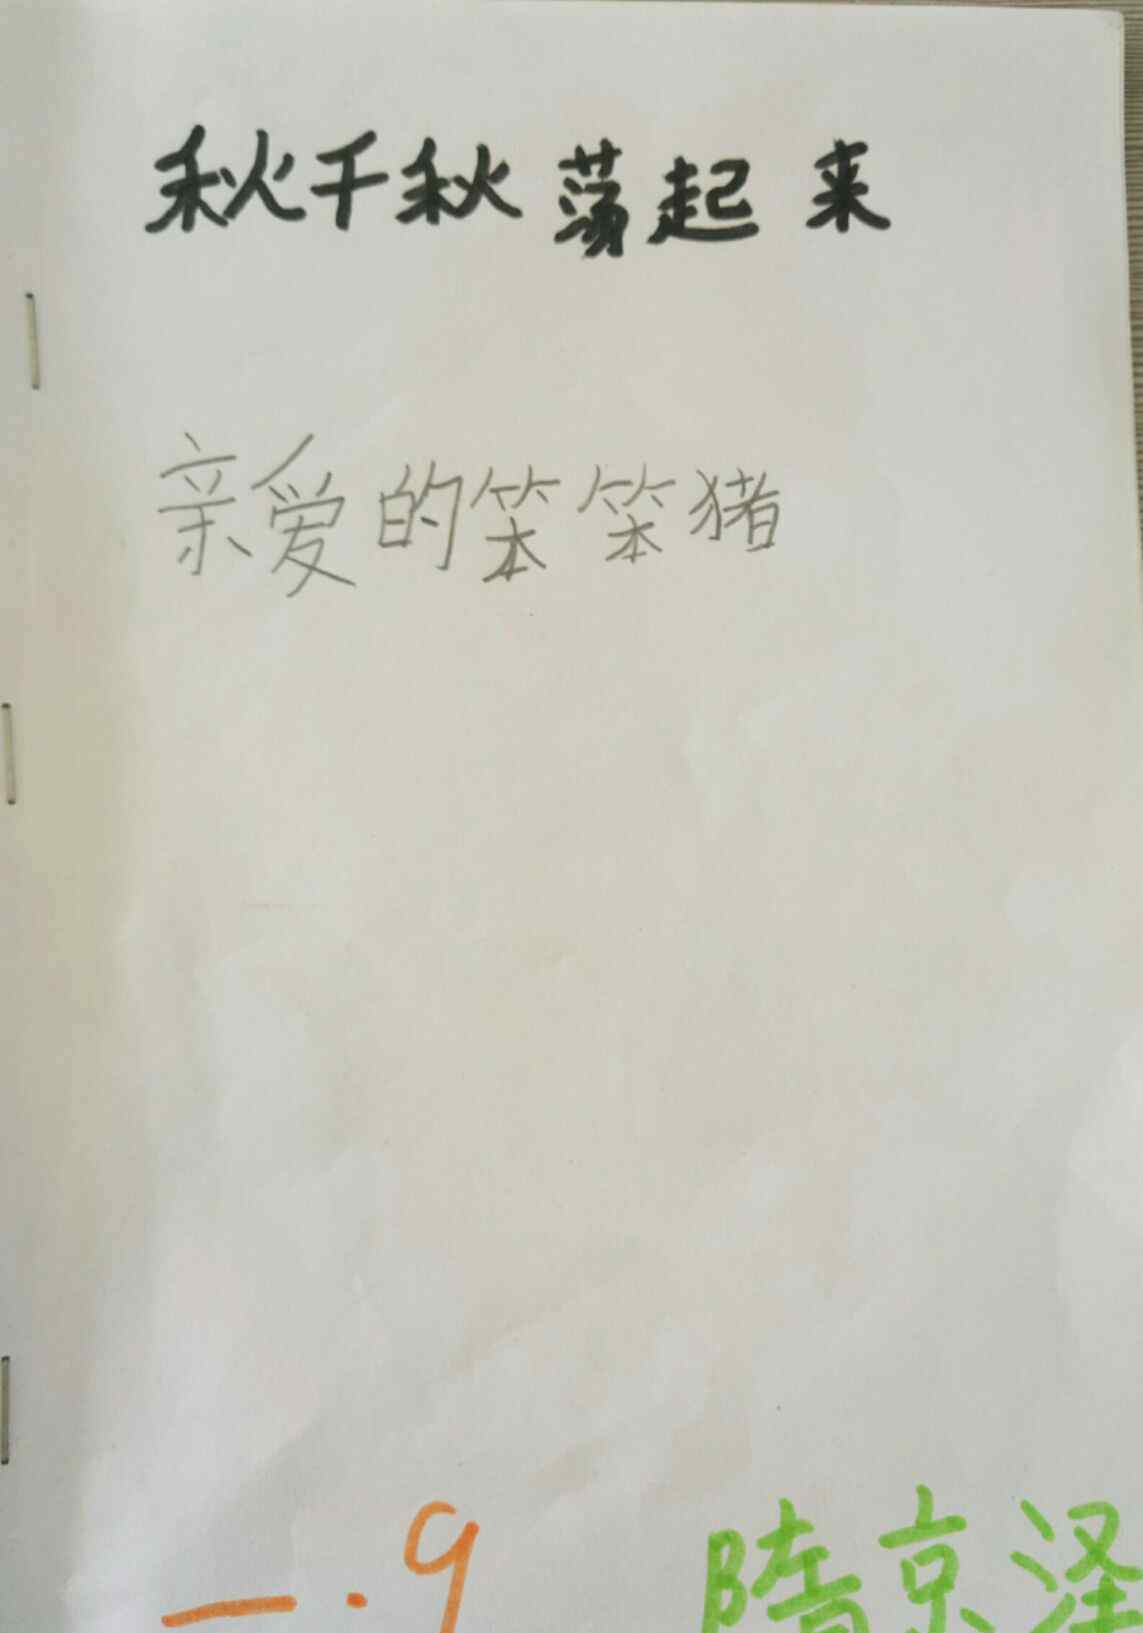 秋千秋荡起来
亲爱的笨笨猪
一.9 隋京泽